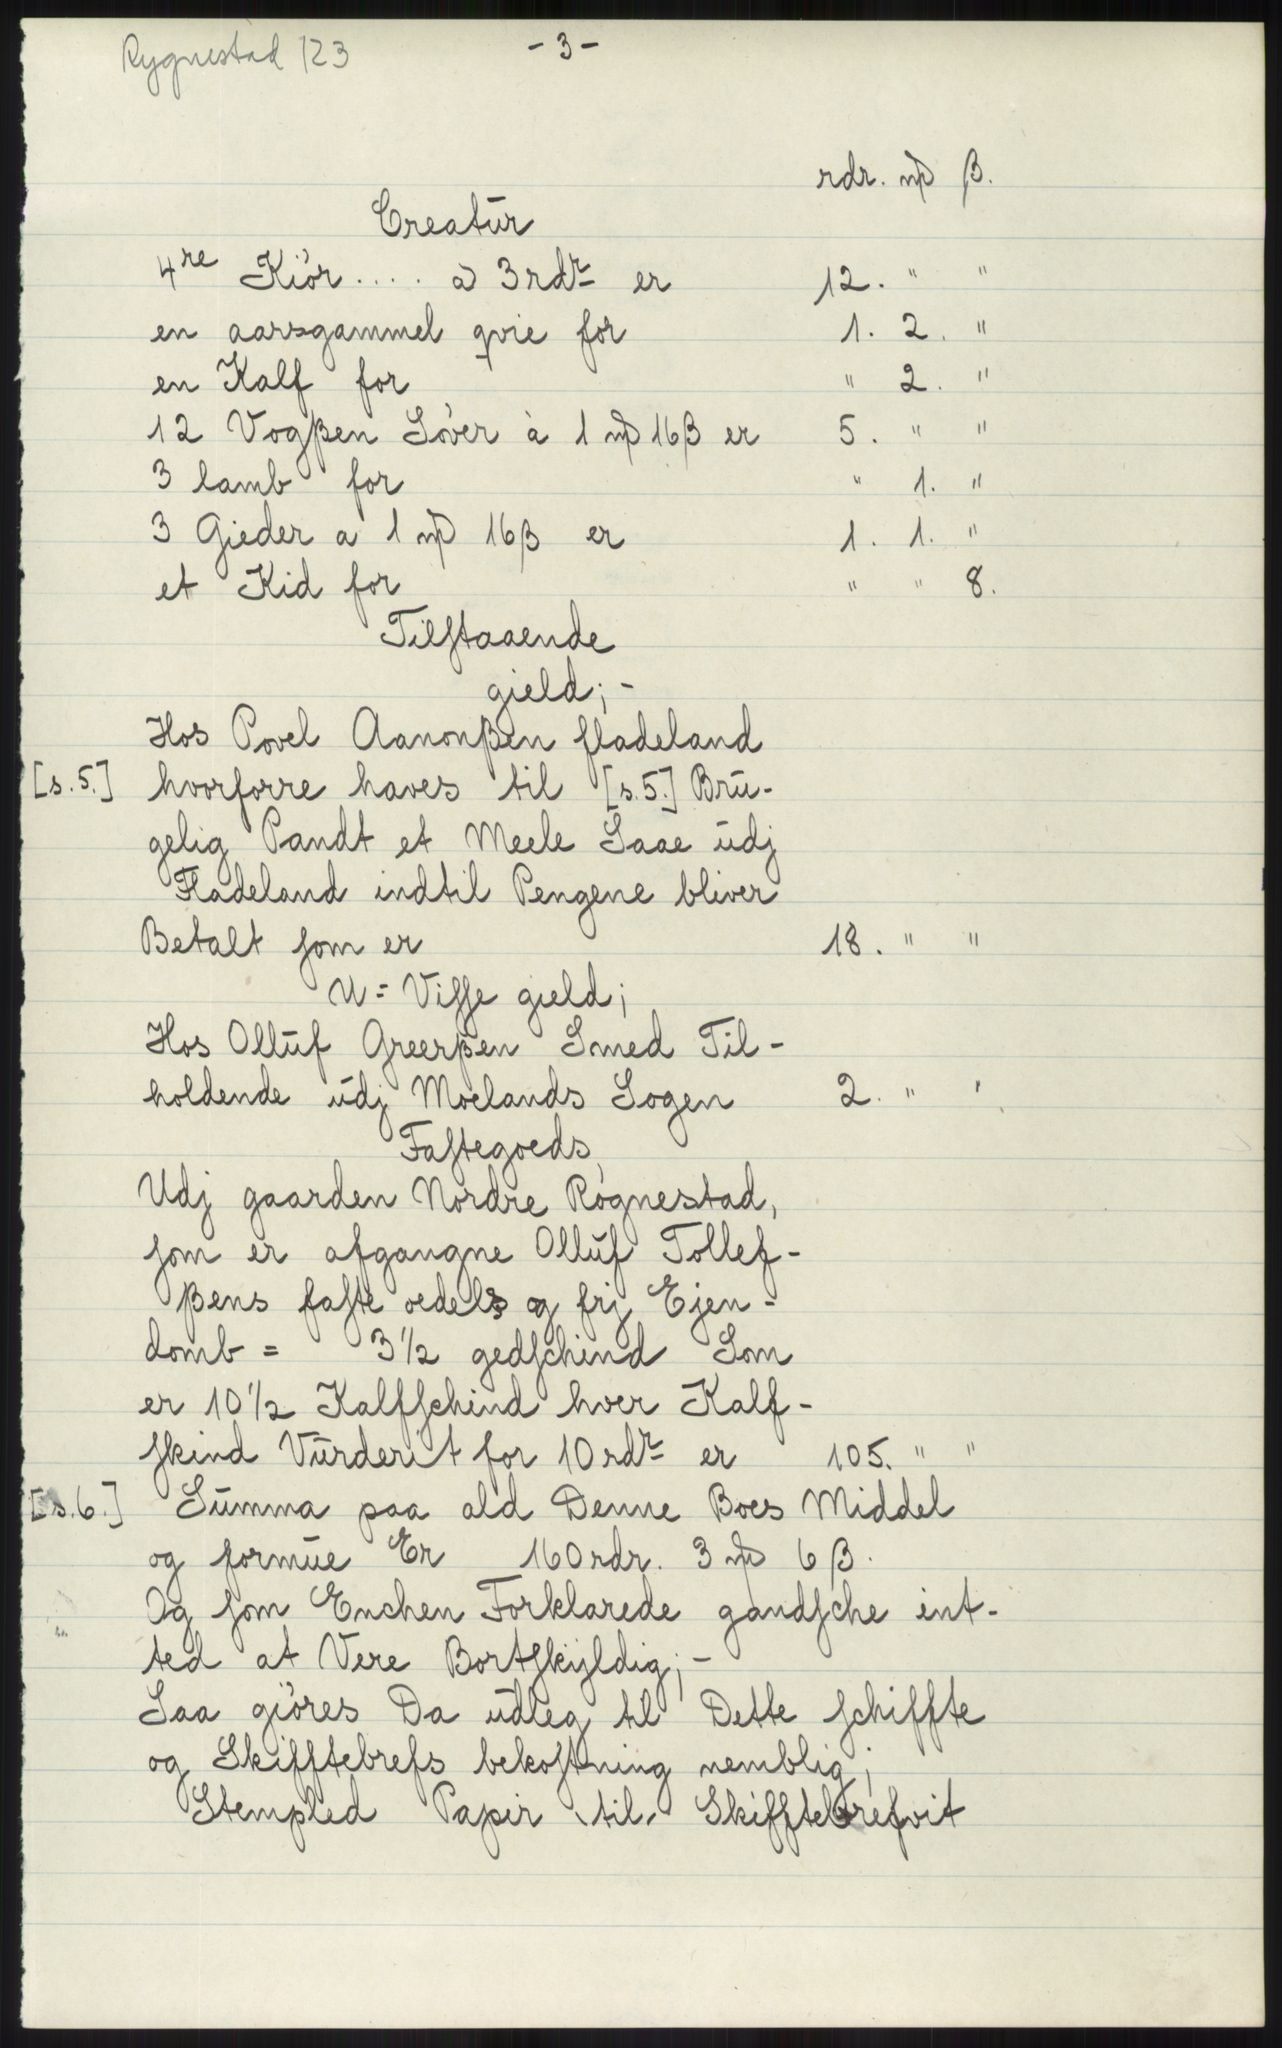 Rygnestad 123
- 3 -
rdr. mþ β.
Creatūr
4re Kiör .... a 3 rdr er 12. " "
en aarsgammel qvie for 1. 2. "
en Kalf for " 2. "
12 Vogβen Söer à 1 mþ 16β er 5. " "
3 lamb for " 1. "
3 Gieder a 1 mþ 16β er 1. 1. "
et Kid for " " 8.
Tilstaaende
gield; -
Hos Povel Aanonβen fladeland
[s. 5.] hvorforre haves til [s. 5.] Brū-
gelig Pandt et Meele Saae ūdj
Fladeland indtil Pengene bliver
Betalt som er 18. " "
U = Visse gield;
Hos Ollūf Greerβen Smed Til-
holdende ūdj Moelands Sogen 2. " '.
Fastegoeds,
Udj gaarden Nordre Rögnestad,
som er afgangne Ollūf Tollef-
βens faste oedels og frj Ejen-
domb = 3 1/2 gedschind Som
er 10 1/2 Kalfschind hver Kalf-
skind Vūrderit for 10 rdr er 105. " "
[s. 6.] Sūmma paa ald Denne Boes Middel
og formūe Er 160 rdr. 3 mþ 6 β.
Og som Enchen Forklarede gandsche int-
ted at Vere Bortskyldig; -
Saa giöres Da ūdleg til Dette schiffte
og Skifftebrefs bekostning nemblig;
Stempled Papir til Skifftebrefvit